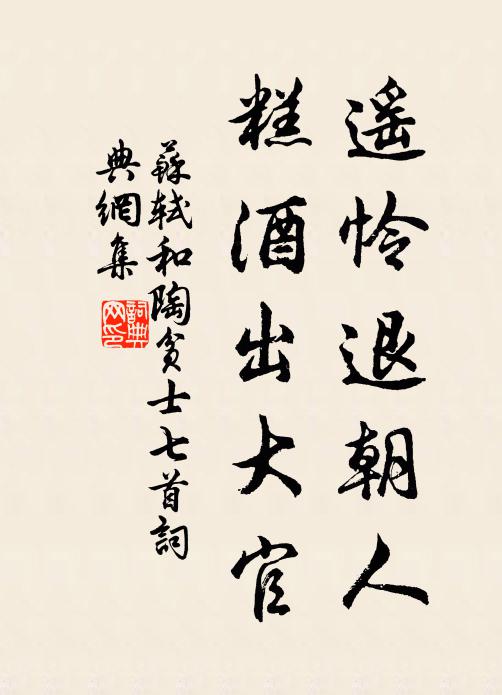 遥怜退朝人
糕酒出大官
蘇軾和陶貧士七首詞
典網集
詞典
网印